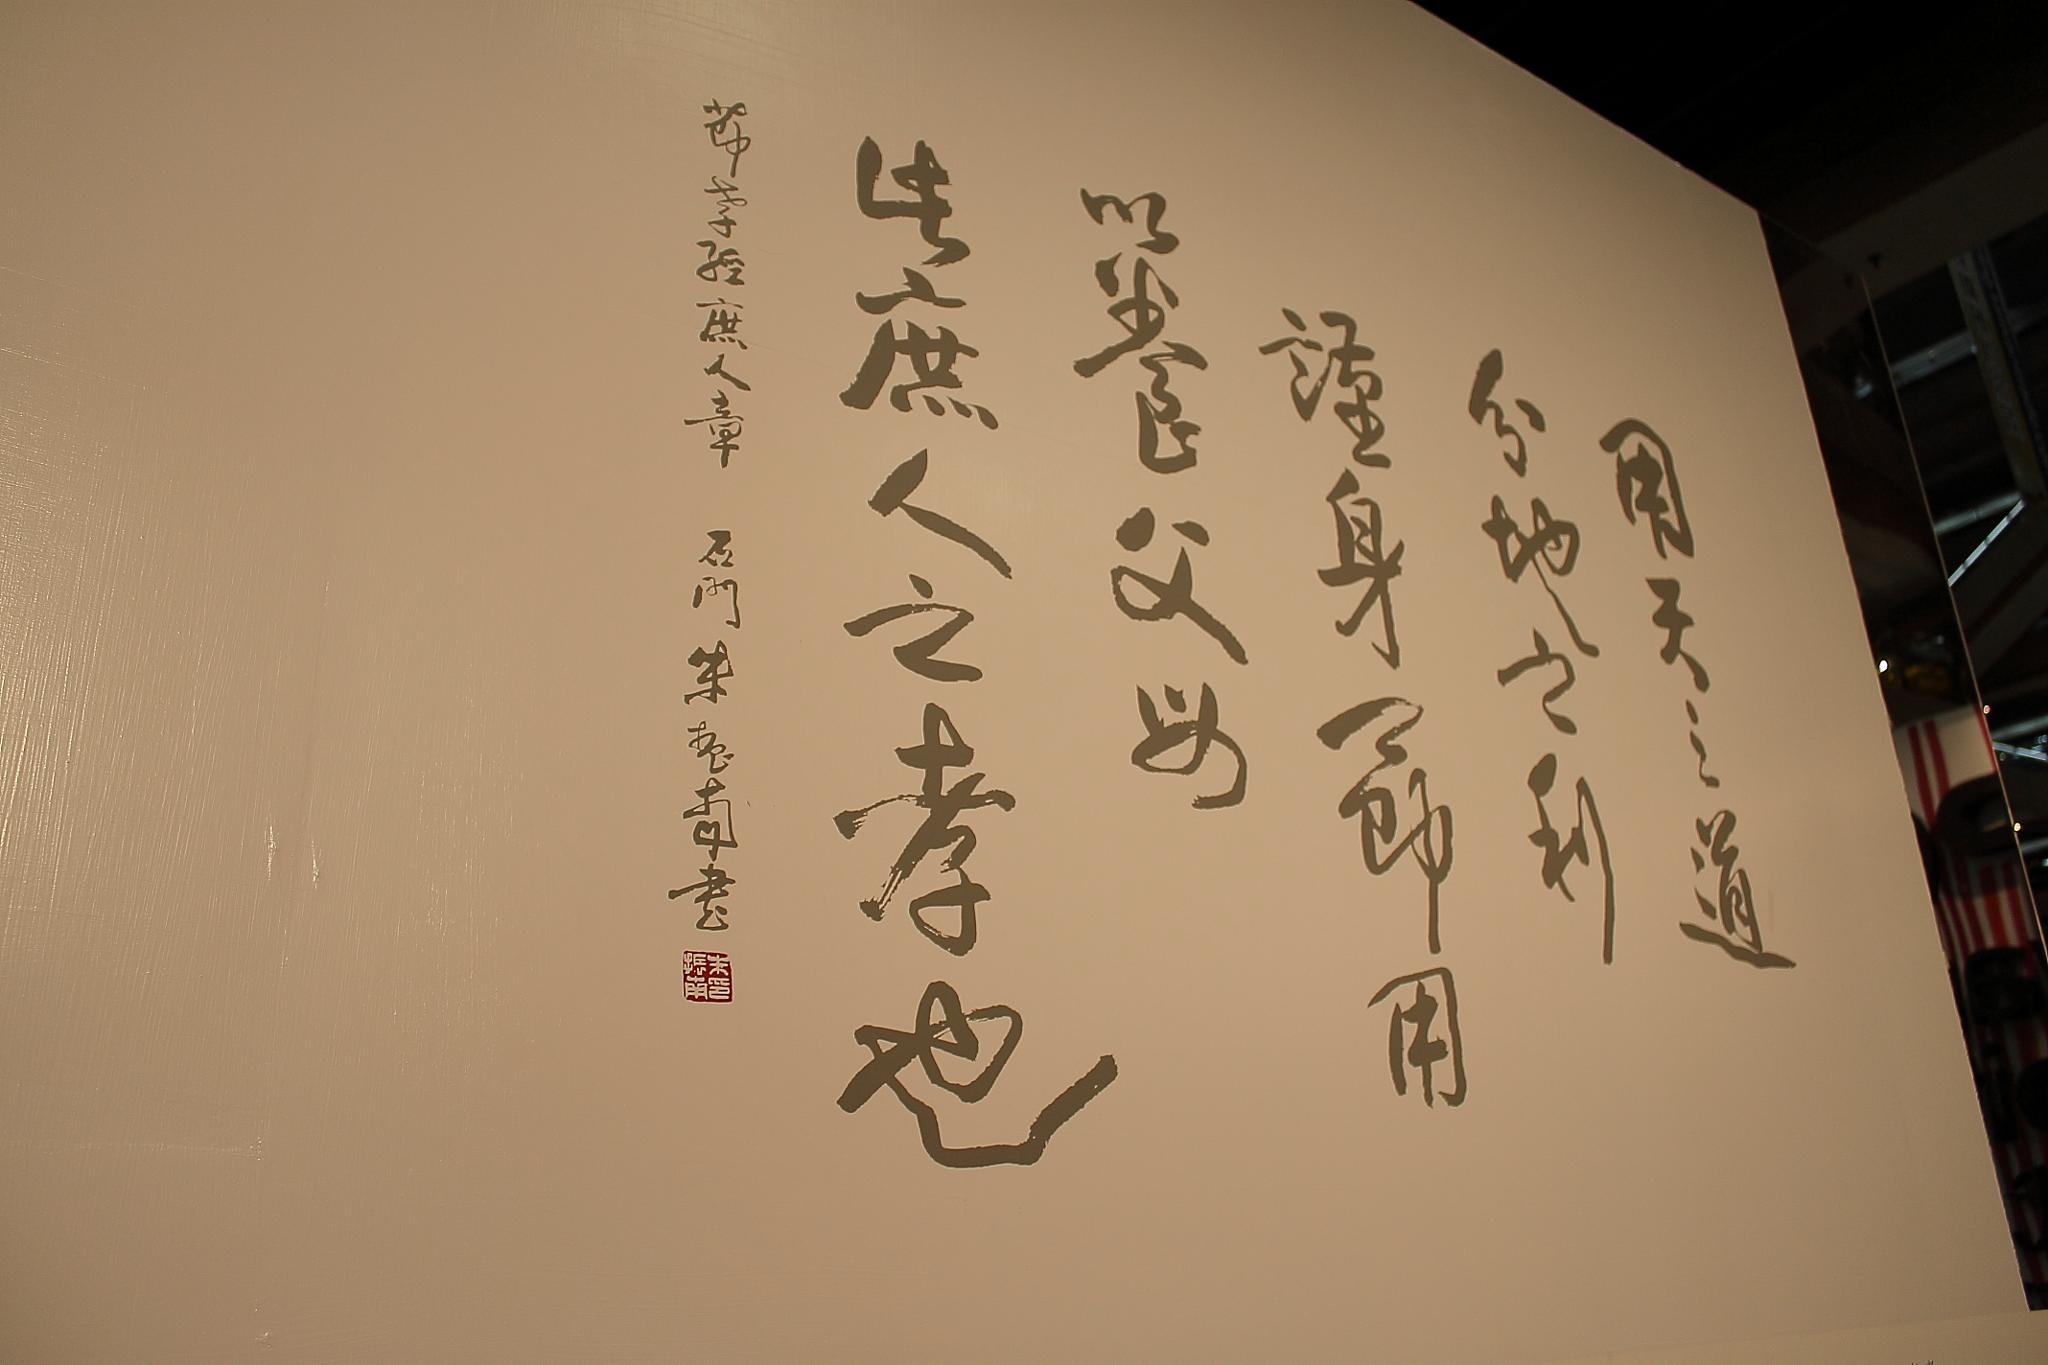 用天之道
分地之利
謹身節用
以養父母
此庶人之孝也
節孝經庶人章 石門朱振甫書
朱振甫印